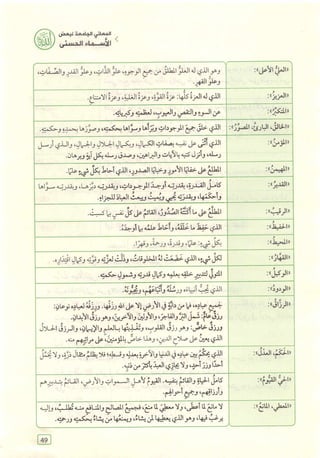 المعاني الجامعة لبعض
الأسماء الحسنى
«العليُّ الأعلى»: وهو الذي له العلو المطلق من جميع الوجوه، علوُّ الذَّات، وعلوُّ القدر والصِّفات،
وعلوُّ القهر.
«العزيز»: الذي له العزة كلُّها: عزة القوَّة، وعزة الغلبة، وعزة الامتناع.
«المتكبِّر»: عن السوء والنقص والعيوب، لعظمته وكبريائه.
«الخالق، البارئ، المصوِّر»: الذي خلق جميع الموجودات وبرأها وسوَّاها بحكمته، وصوَّرها بحمده وحكمته.
«المؤمن»: الذي أثنى على نفسه بصفات الكمال، وبكمال الجلال والجمال، والذي أرسل
رسله، وأنزل كتبه بالآيات والبراهين، وصدق رسله بكل آية وبرهان.
«المهيمن»: المطلع على خفايا الأمور وخبايا الصدور، الذي أحاط بكل شيء علمًا.
«القدير»: كامل القدرة، بقدرته أوجد الموجودات، وبقدرته دبَّرها، وبقدرته سوَّاها
وأحكمها، وبقدرته يحيي ويميت ويبعث العباد للجزاء
«الرقيب»: المطلع على ما أكنَّته الصُّدور، القائم على كلِّ نفس بما كسبت.
«الحفيظ»: الذي حفظ ما خلقه، وأحاط علمه بما أوجده.
«المحيط»: بكل شيء: علمًا، وقدرة، ورحمة، وقهرًا.
«القهَّار»: لكل شيء، الذي خضعت له المخلوقات، وذلَّت لعزَّته وقوَّته وكمال اقتداره.
«الوكيل»: المتولي لتدبير خلقه بعلمه وكمال قدرته وشمول حكمته.
«الودود»: الذي يحبُّ أنبياءه ورسله وأتباعهم، ويحبُّونه.
«الرزَّاق»: لجميع عباده، فما من دابَّة في الأرض إلا على الله رزقها، ورزقه لعباده نوعان:
رزق عامٌّ: شمل البرَّ والفاجر، والأولين والآخرين، وهو رزق الأبدان.
ورزق خاصٌّ: وهو رزق القلوب، وتغذيتها بالعلم والإيمان، والرزق الحلال
الذي يعين على صلاح الدين، وهذا خاصٌّ بالمؤمنين، على مراتبهم منه.
«الحكَم، العدل»: الذي يحكم بين عباده في الدنيا والآخرة بعدله وقسطه؛ فلا يظلم مثقال ذرَّة، ولا يحمِّل
أحدًا وزر أحد، ولا يجازي العبد بأكثر من ذنبه
«الحيُّ القيُّوم»: كامل الحياة والقائم بنفسه. القيوم لأهل السموات والأرض، القائم بتدبيرهم
وأرزاقهم، وجميع أحوالهم.
«المعطي، المانع»: لا مانع لما أعطى، ولا معطي لما منع، فجميع المصالح والمنافع منه تُطلب، وإليه
يرغب فيها، وهو الذي يعطيها لمن يشاء، ويمنعها من يشاء بحكمته ورحمته.
49